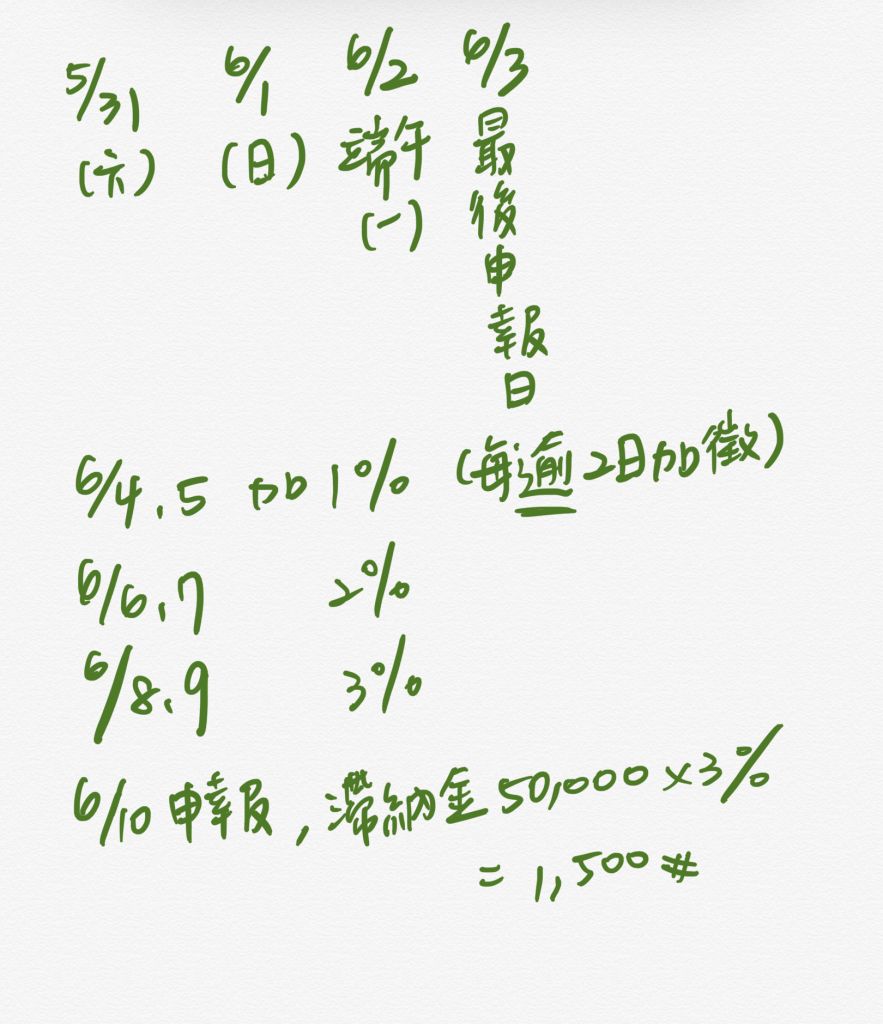 5/31 6/1 6/2 6/3
(六) (日) 端午 最後申報日
(一)
6/4、5 加1% (每逾2日加徵)
6/6、7 2%
6/8、9 3%
6/10申報，滯納金50,000×3%
=1,500#